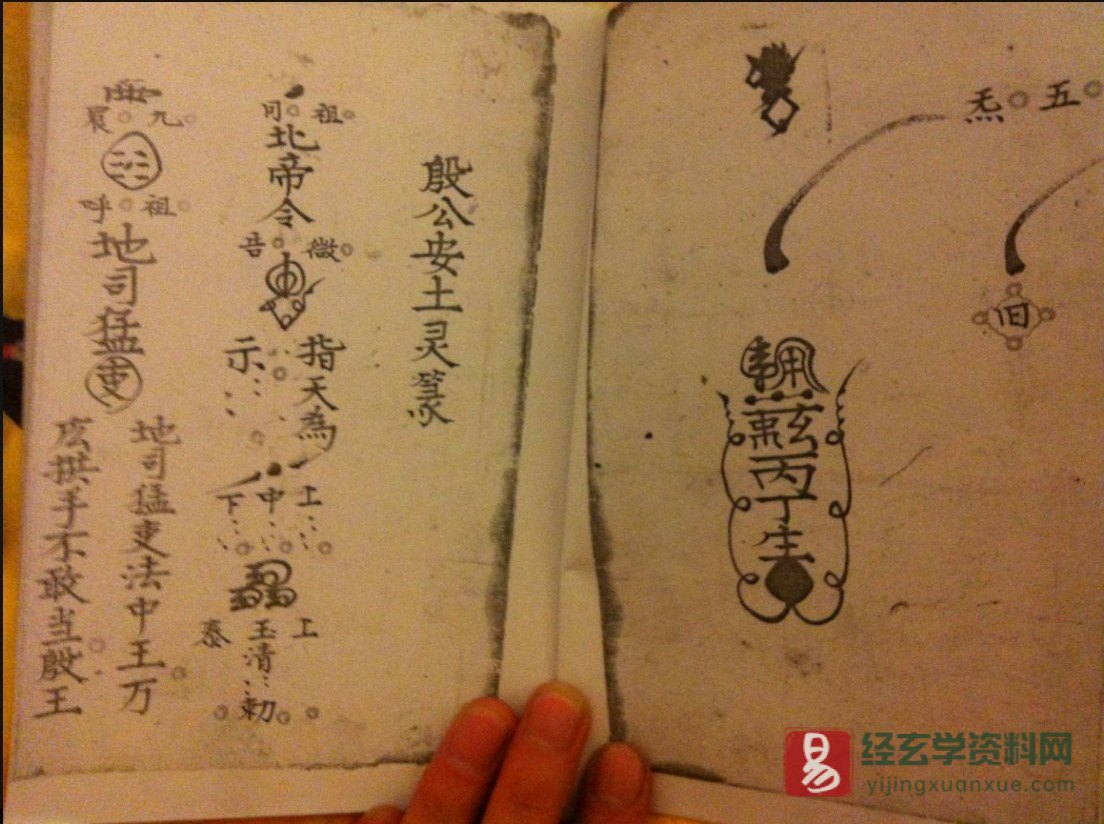 五。炁。
回
丙丁生
殷公安土灵篆
祖。司。
北帝令
微。吾。
指天為
示
上中下
上玉清泰
勅
九。
祖。呼。
地司猛吏
地司猛吏法中王。万
拱手不敢当。殷王
易
经玄学资料网
yijingxuanxue.com